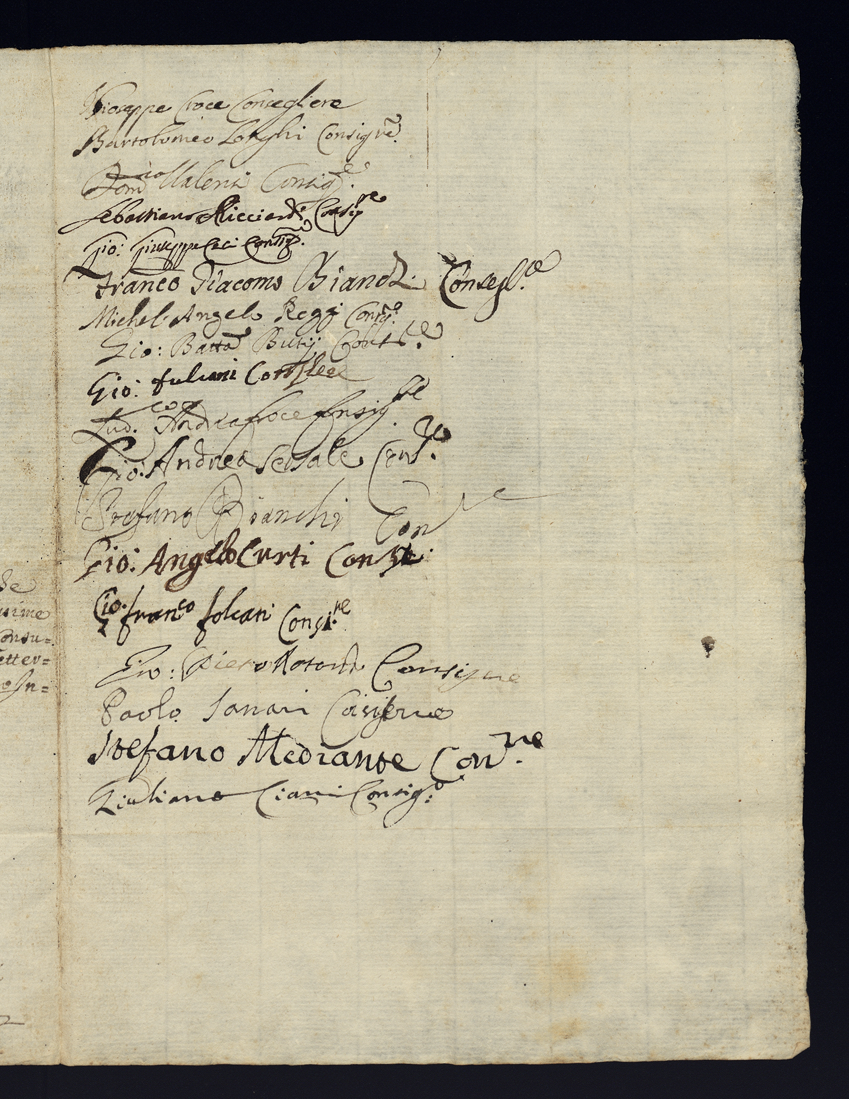 Giuseppe Croce Consegliere
Bartolomeo Longhi Consig.re
Dom.co Valenti Consig.e
Sebastiano Ricciardi Consig.re
Gio: Giuseppe Ceci Consig.e
Franc.o Giacomo Bianchi Consegl.re
Michel. Angelo Reggi Consig.e
Gio: Batta
Gio: fulcani
Lud.co Andrea Croce Consig.re
Gio: Andrea Sersale Cons.re
Stefano Bianchi Con.re
Gio: Angelo Curti Cons.re
Gio: franco folcari Consi.re
Gio: Pietro Consigre
Paolo Consigre
Stefano Medrante Con.re
Giuliano Ciani Consig.e
de
ssime
Consu=
etter=
In=